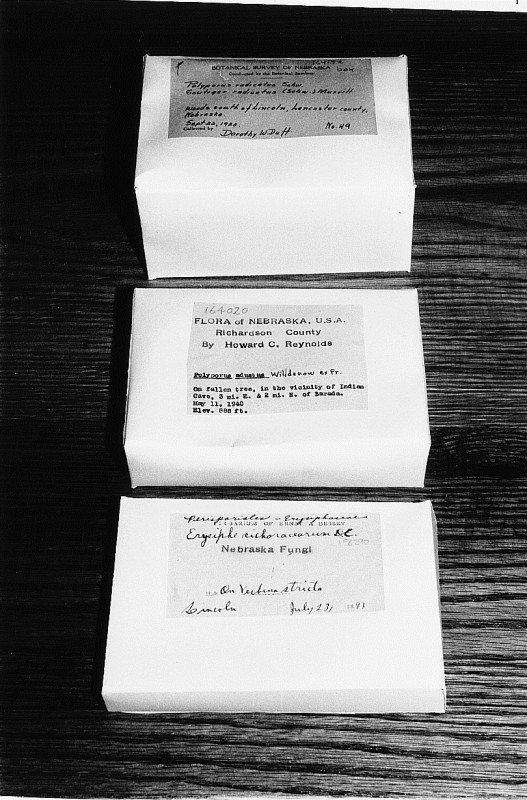 BOTANICAL SURVEY OF NEBRASKA
Conducted by the Botanical Seminar
box
Polyporus radicatus Schw.
(Schw.) Murrill
Woods south of Lincoln, Lancaster county,
Nebraska
Sept. 22, 1920.
No. 49
Collected by Dorothy W. Duff
164020
FLORA of NEBRASKA, U.S.A.
Richardson County
By Howard C. Reynolds
Polyporus adustus Willdenow ex Fr.
On fallen tree, in the vicinity of Indian
Cave, 3 mi. E. & 2 mi. N. of Barada.
May 11, 1940
Elev. 888 ft.
Perisporiales - Erysiphaceae
HERBARIUM OF ERNST A. BESSEY
Erysiphe cichoracearum DC.
Nebraska Fungi
On Verbena stricta
Lincoln July 23, 1893